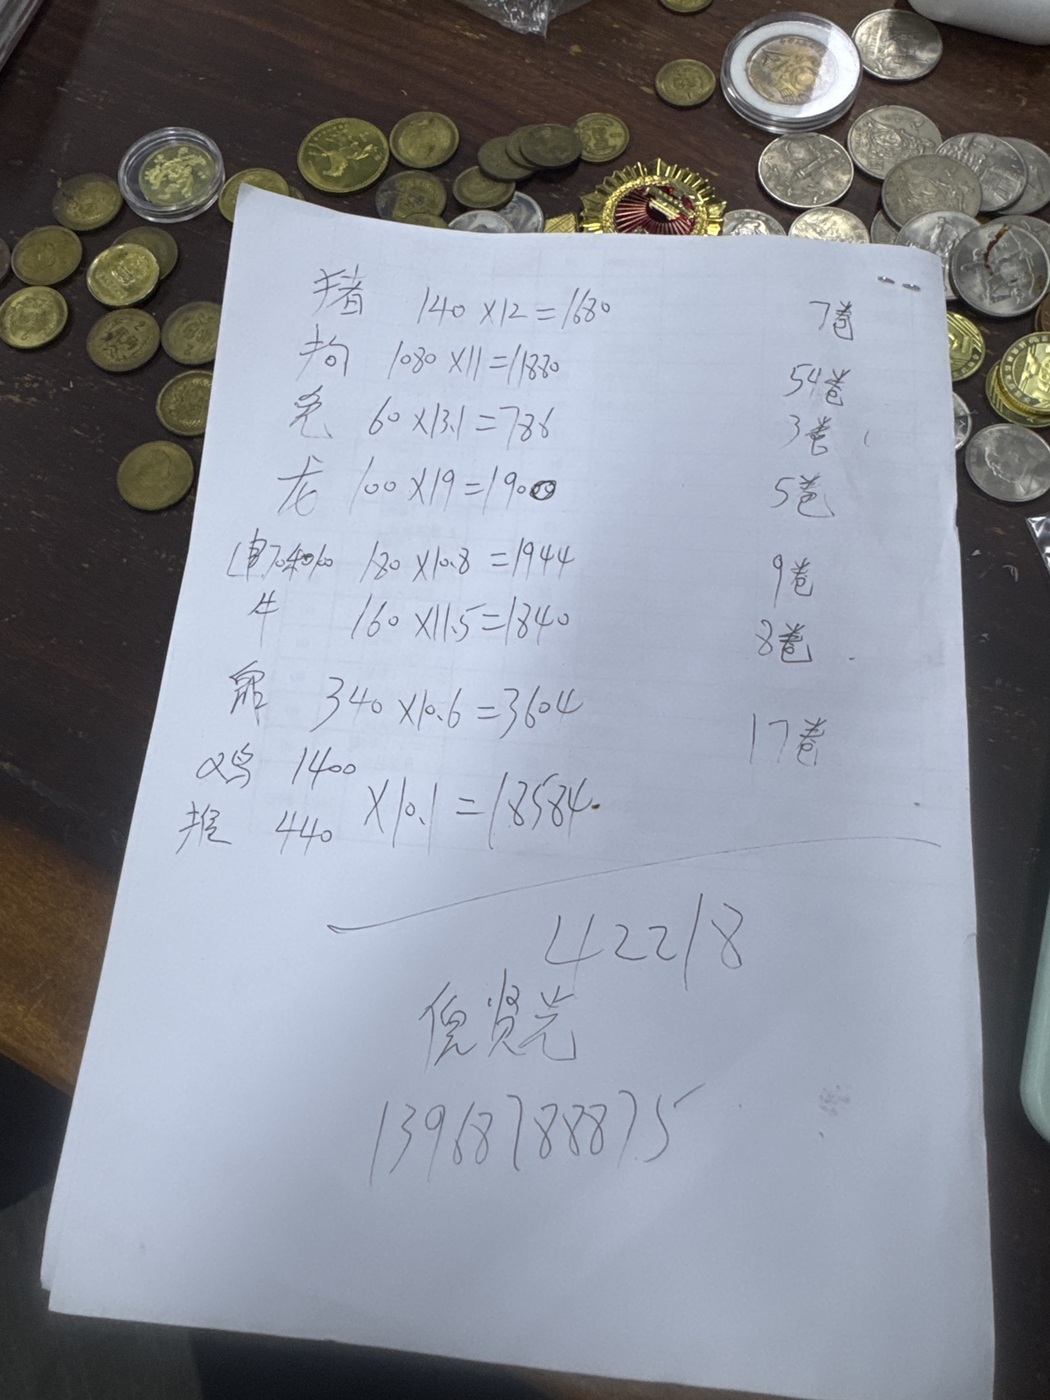 猪 140×12=1680 7卷
狗 1080×11=11880 54卷
兔 60×13.1=786 3卷
龙 100×19=1900 5卷
180×10.8=1944 9卷
牛 160×11.5=1840 8卷
340×10.6=3604 17卷
鸡 1400
猴 440 ×10.1=18584
42218
倪贤光
13968788875